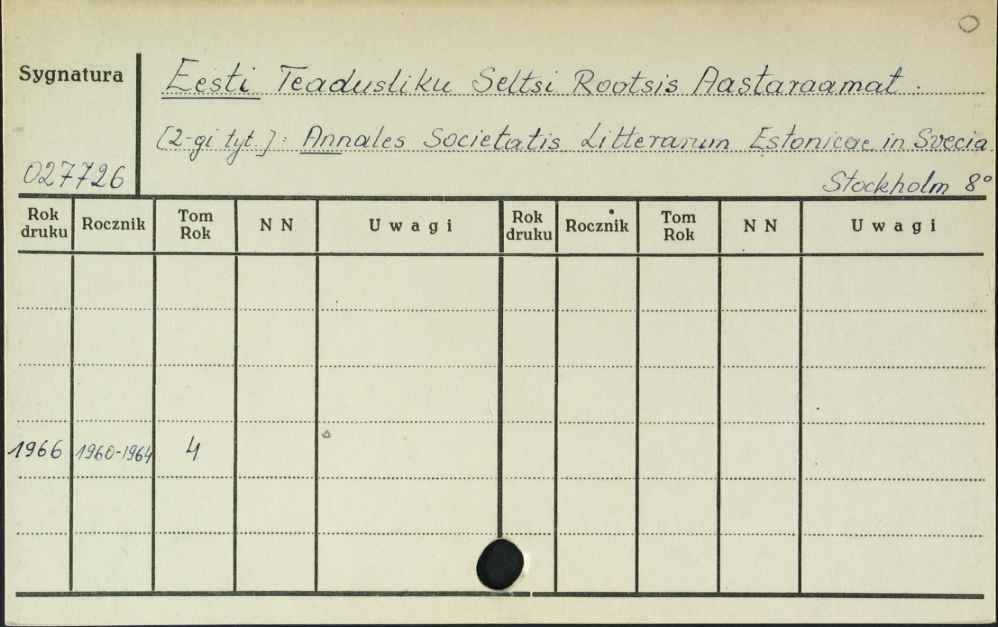 Sygnatura
Eesti Teadusliku Seltsi Rootsis Aastaraamat.
[2-gi tyt.]: Annales Societatis Litterarum Estonicae in Svecia
027726
Stockholm 8°
Rok druku Rocznik Tom Rok N N Uwagi Rok druku Rocznik Tom Rok N N Uwagi
1966 1960-1964 4